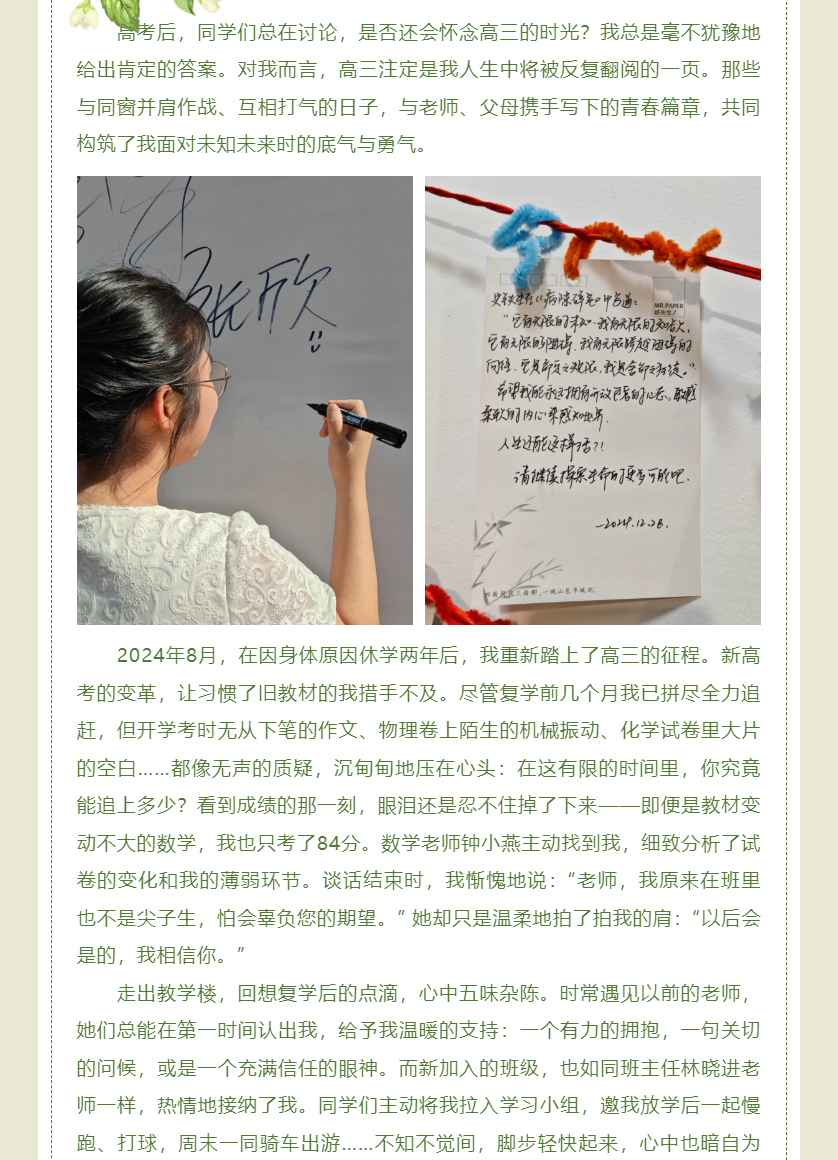 高考后，同学们总在讨论，是否还会怀念高三的时光？我总是毫不犹豫地
给出肯定的答案。对我而言，高三注定是我人生中将被反复翻阅的一页。那些
与同窗并肩作战、互相打气的日子，与老师、父母携手写下的青春篇章，共同
构筑了我面对未知未来时的底气与勇气。
张欣
史铁生在《病隙碎笔》中写道：
“它有无限的未知，我有无限的知欲，
它有无限的阻碍，我有无限跨越阻碍的
可能。
希望我能永远拥有开放包容的心态，敏感
柔软的内心来感知世界。
人生还能这样活？！
请继续探索生命的更多可能吧.
—2024.12.28.
MR.PAPER
2024年8月，在因身体原因休学两年后，我重新踏上了高三的征程。新高
考的变革，让习惯了旧教材的我措手不及。尽管复学前几个月我已拼尽全力追
赶，但开学考时无从下笔的作文、物理卷上陌生的机械振动、化学试卷里大片
的空白……都像无声的质疑，沉甸甸地压在心头：在这有限的时间里，你究竟
能追上多少？看到成绩的那一刻，眼泪还是忍不住掉了下来——即便是教材变
动不大的数学，我也只考了84分。数学老师钟小燕主动找到我，细致分析了试
卷的变化和我的薄弱环节。谈话结束时，我惭愧地说：“老师，我原来在班里
也不是尖子生，怕会辜负您的期望。”她却只是温柔地拍了拍我的肩：“以后会
是的，我相信你。”
走出教学楼，回想复学后的点滴，心中五味杂陈。时常遇见以前的老师，
她们总能在第一时间认出我，给予我温暖的支持：一个有力的拥抱，一句关切
的问候，或是一个充满信任的眼神。而新加入的班级，也如同班主任林晓进老
师一样，热情地接纳了我。同学们主动将我拉入学习小组，邀我放学后一起慢
跑、打球，周末一同骑车出游……不知不觉间，脚步轻快起来，心中也暗自为